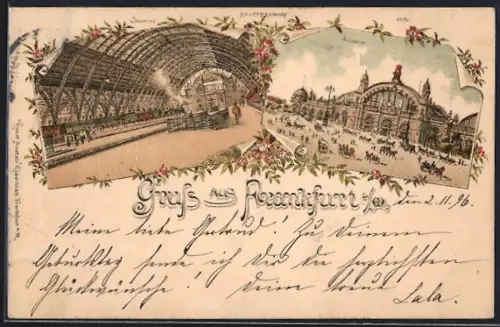 HAUPTBAHNHOF
Gruß aus Frankfurt a/M.
den 2.11.96.
Meine liebe Gertrud! Zu Deinem
Geburtstag sende ich Dir die herzlichsten
Glückwünsche! Deine treue
Lala.